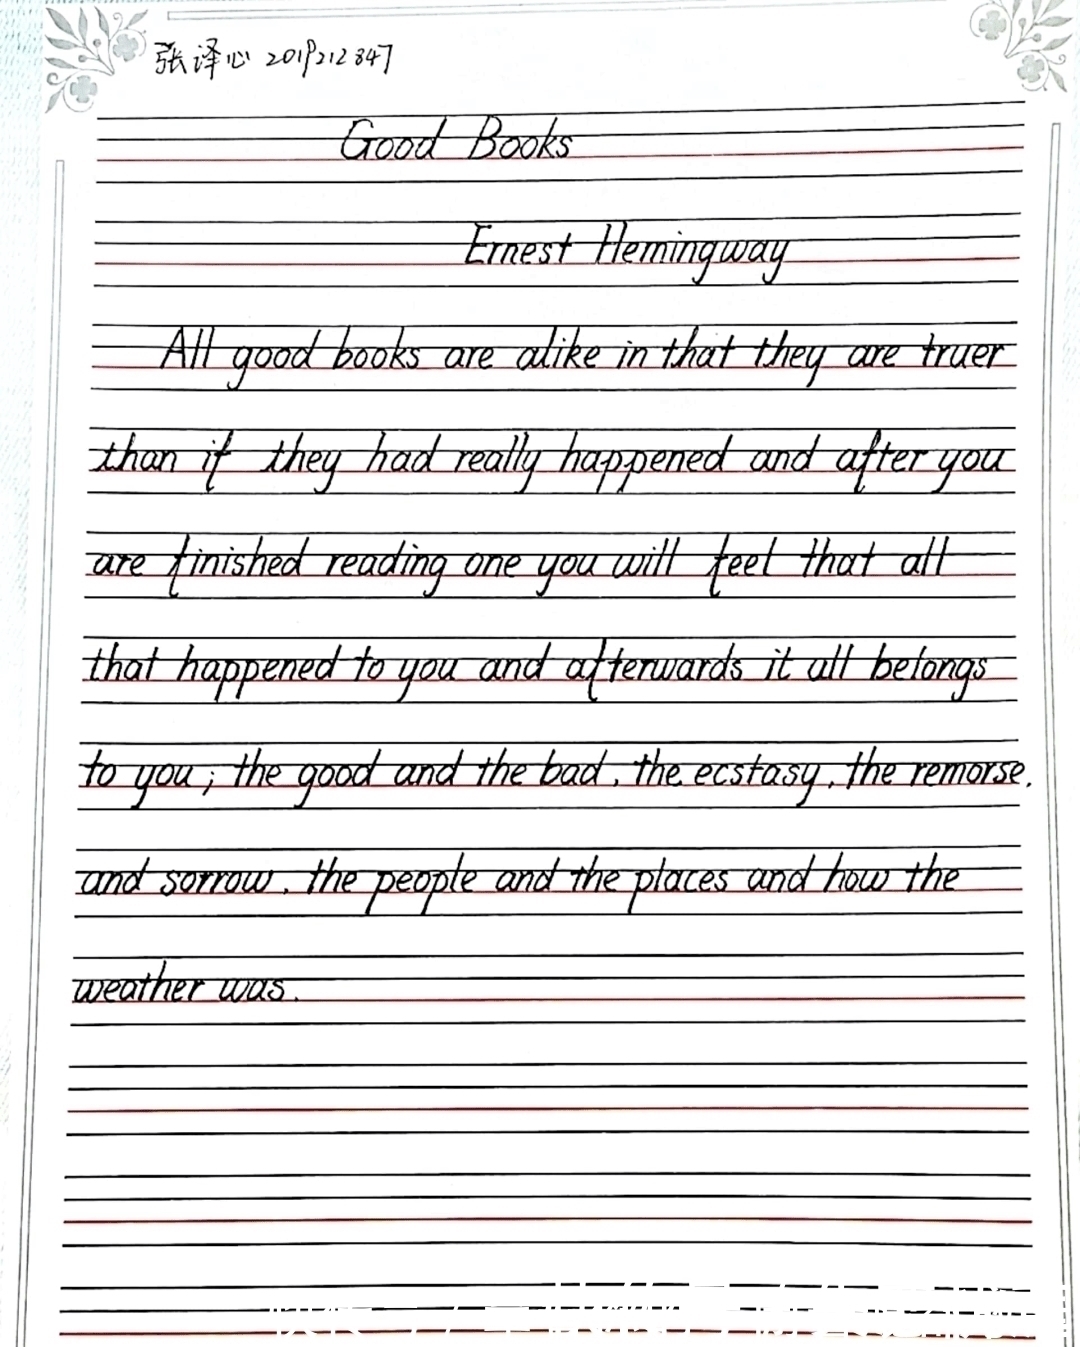 张译心 2019212847
Good Books
Ernest Hemingway
All good books are alike in that they are truer
than if they had really happened and after you
are finished reading one you will feel that all
that happened to you and afterwards it all belongs
to you; the good and the bad, the ecstasy, the remorse,
and sorrow, the people and the places and how the
weather was.